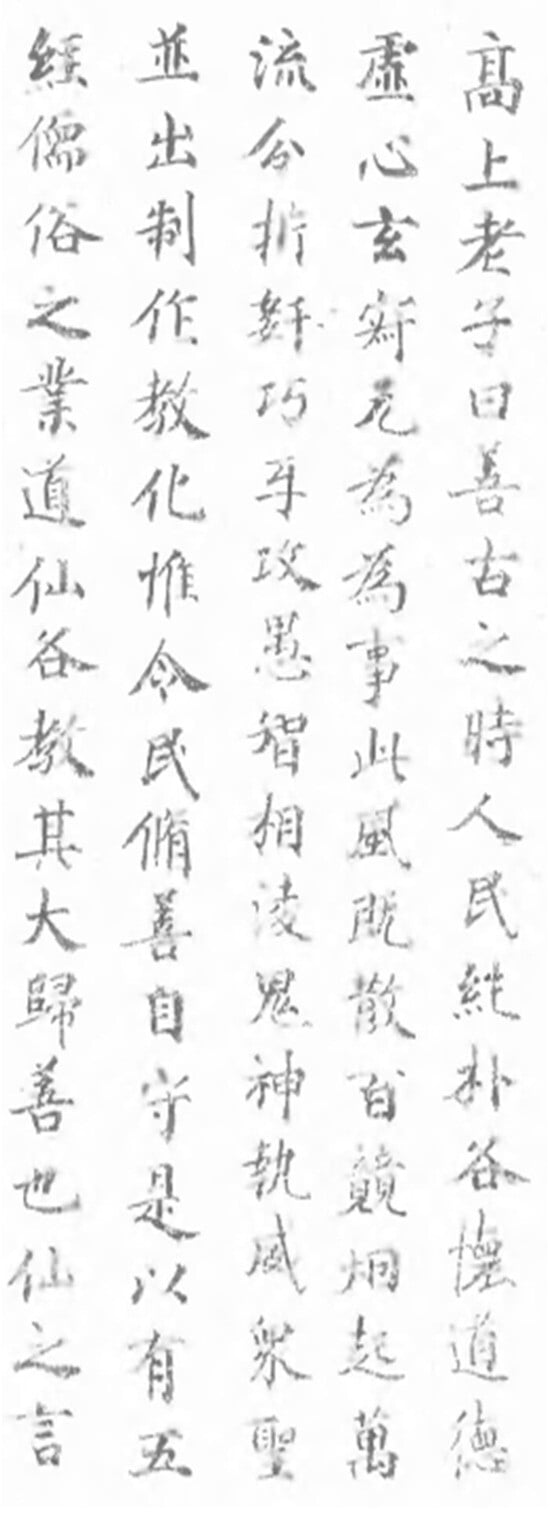 高上老子曰善古之時人民純朴各懷道德
虛心玄寂无為為事此風既散百競烟起萬
流分析奸巧牙攻愚智相淩鬼神執威衆聖
並出制作教化惟令民脩善自守是以有五
經儒俗之業道仙各教其大歸善也仙之言